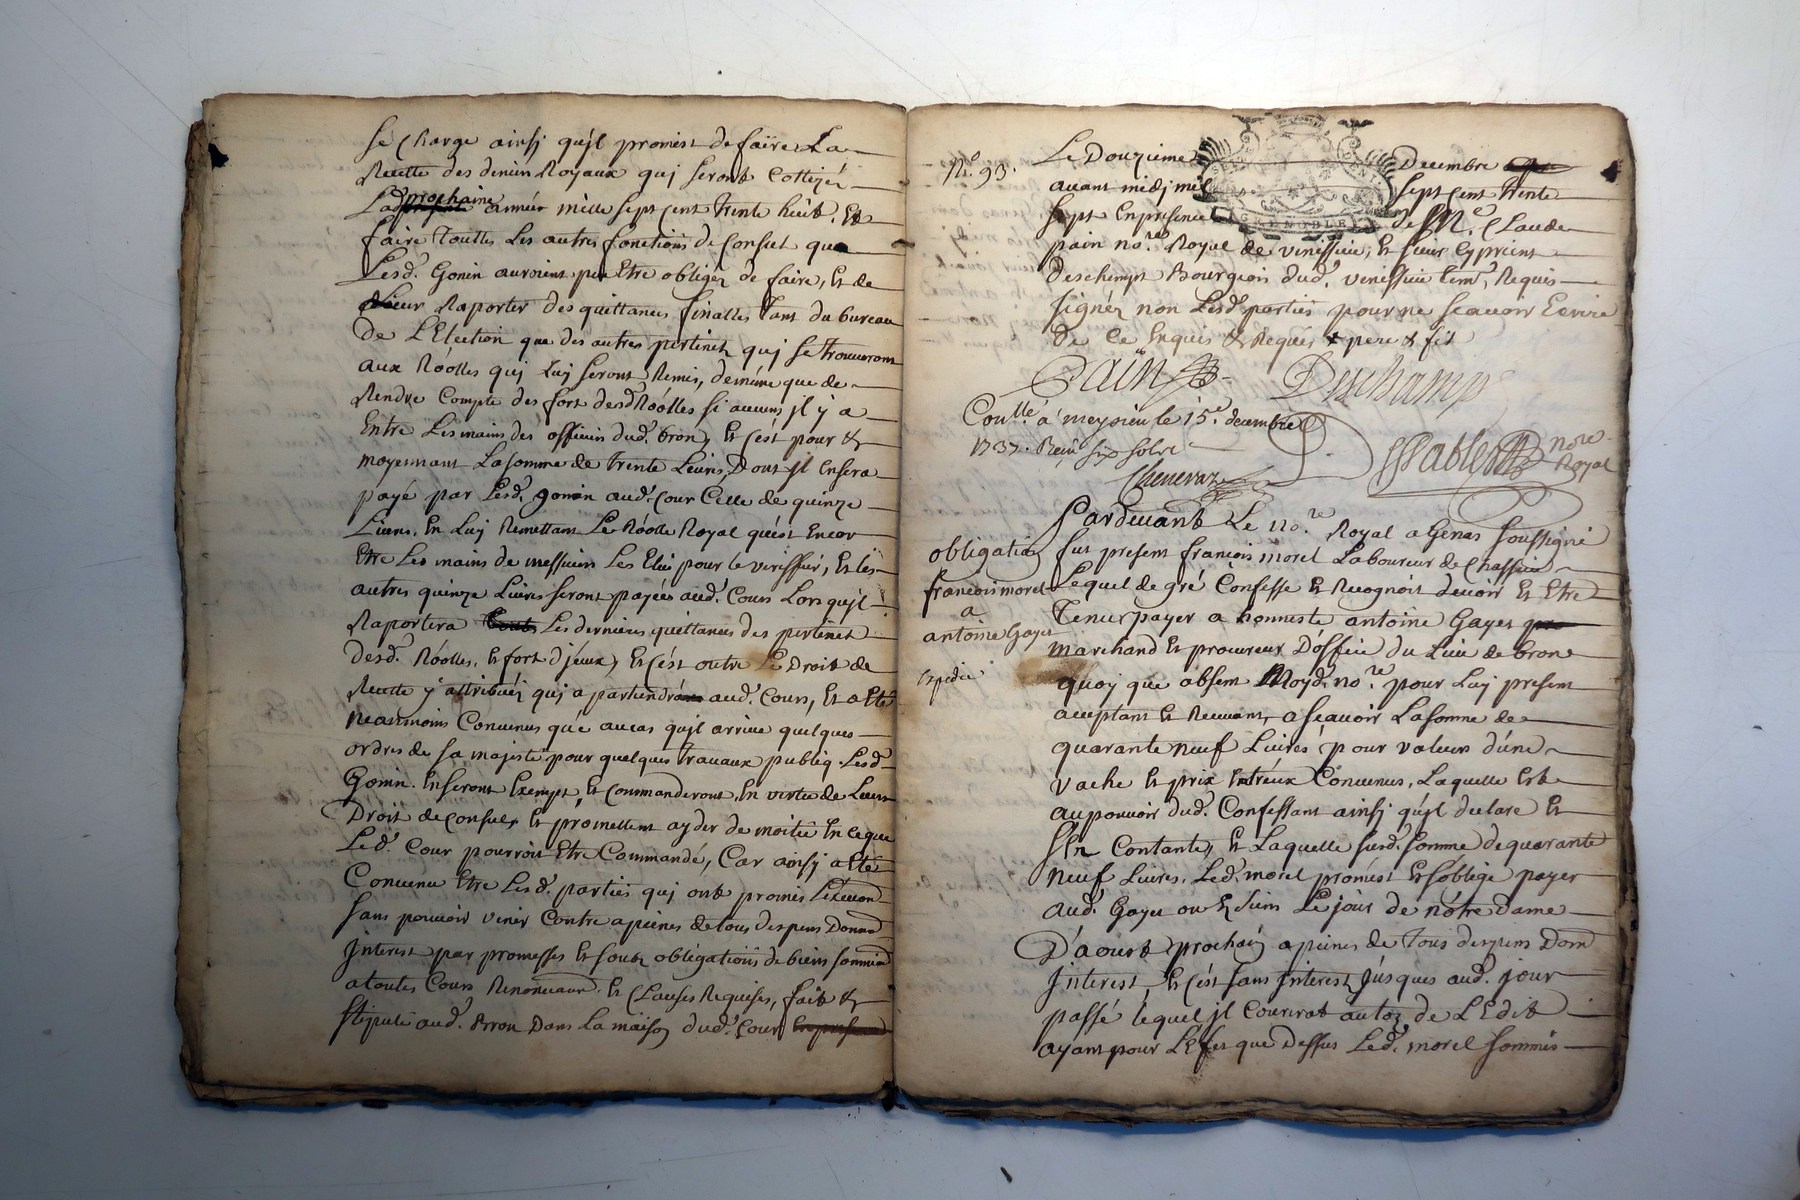 Se Charge ainsy qu'jl promest de faire La
Recette des deniers Royaux quj seront Cottizés
Lad. prochaine année mille sept cent trente huit. Et
faire touttes Les autres fonctions de Consul que
Lesd. Gonin auroient peu Etre obligés de faire, Et de
Raporter des quittances finalles tant du bureau
de L'Election que des autres pertinets quj se trouveront
aux Róolles quj Luj seront Remis, de méme que de
Rendre Compte des fort desd. Róolles si aucuns jl y a
Entre Les mains des officiers dud. bron, Et c'ést pour &
moyennant La somme de trente Livres, Dont jl En sera
payé par Lesd. gonin aud. Cour Celle de quinze
Livres, En Luj Remettant Le Róolle Royal qu'ést Encor
Etre Les mains de messieurs Les Elus pour le veriffier, Et les
autres quinze Livres seront payées aud. Cour Lors qu'jl
Raportera Les dernieres quittances des pertinets
desd. Róolles, Et fort d'jceux, Et c'ést outre Le Droit de
Recette y attribuéz quj apartiendra aud. Cour, Et a Eté
neanmoins Convenus que au cas qu'jl arrive quelques
ordres de sa majesté pour quelques travaux publiq. Lesd.
Gonin. En seront Exempt, Et Commanderont En vertu de Leurs
Droit de Consul, Et promettent ayder de moitié En ce que
Led. Cour pourroit Etre Commandé, Car ainsj a Eté
Convenu Etre Lesd. parties quj ont promis L'exeuon
sans pouvoir venir Contre a peines de tous despens Domd
Jnterest par promesses Et soubz obligations de biens sommion
a toutes Cours Renonceaons Et Clauses Requises, fait &
stipulé aud. Bron Dans La maison dud. Cour
No. 93.
Le Douzieme Decembre
avant midj mil sept Cent trente
sept En presence de Me. Claude
pain nore. Royal de venissieu, Et sieur Cyprient
Deschamps Bourgeois dud. venissieu tem. Requis
signés non Lesd. parties pour ne sçavoir Ecrire
de Ce Enquis & Requis + pere & fils
Pain Deschamps
Conllé. á meysieu le 15e. decembre
1737. Reçu six sols
Chenevaz
Sablet nore.
Royal
obligation
francois morel
a
antoine Gayet
Expedié
Pardevant Le nore. Royal a Genas soussigné
fut present françois morel Laboureur de Chassieu
Lequel de gré Confesse Et Recognoit devoir Et Etre
Tenus payer a honneste antoine Gayet
marchand Et procureur D'office du Lieu de bron
quoy que absent Moyd. nore. pour Luj present
aceptant Et Recevant, a sçavoir La somme de
quarante neuf Livres pour valeur d'une
vache Et prix Entr'eux Convenus, Laquelle Est
au pouvoir dud. Confessant ainsj qu'jl declare Et
s'En Contante, Et Laquelle susd. somme de quarante
neuf Livres, Led. morel promest Et s'oblige payer
aud. Gayet ou Es siens Le jour de nótre dame
D'aoust prochain a peines de tous despens Dom
Jnterest Et c'ést sans Jnterest jusques aud. jour
passé lequel jl Courirat au taz de L'Edit
ayant pour L'Efet que Dessus Led. morel sommis